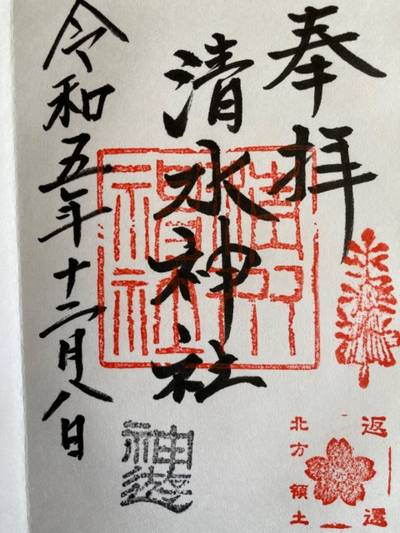 奉拝
清水神社
令和五年十二月八日
清水
神社
返還
北方領土